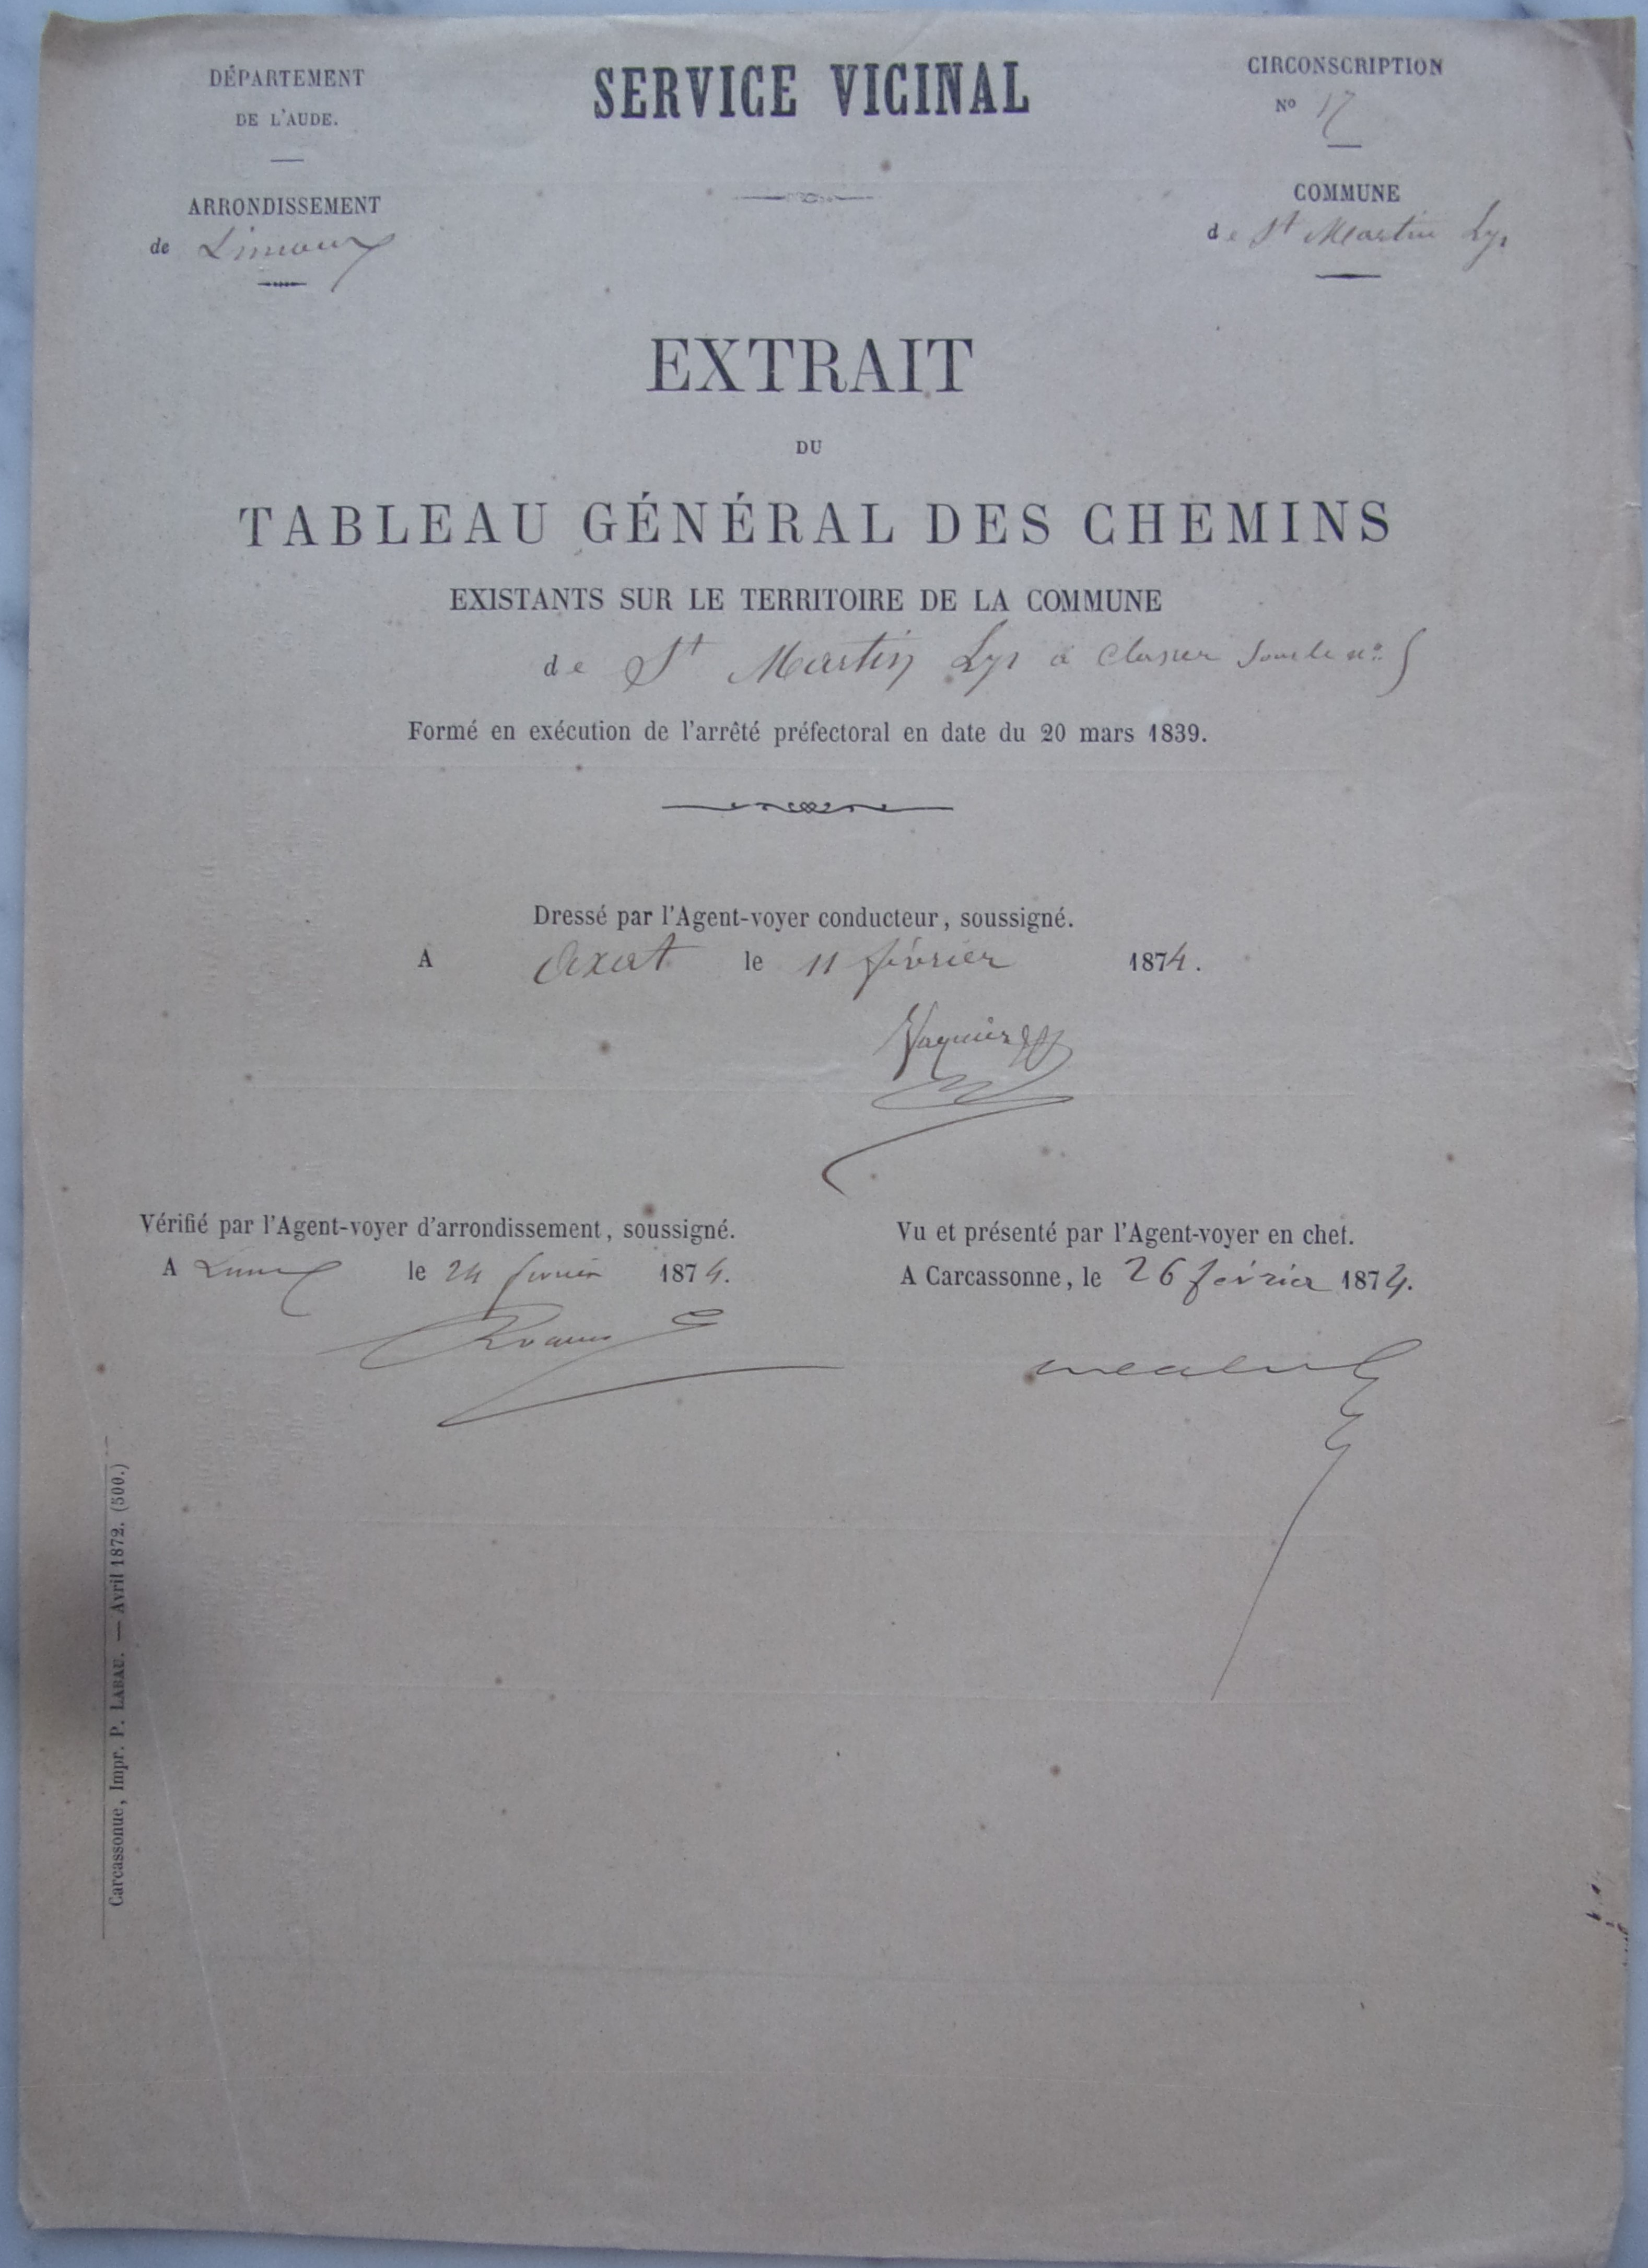 DÉPARTEMENT
DE L'AUDE.
ARRONDISSEMENT
de Limoux
SERVICE VICINAL
CIRCONSCRIPTION
No 17
COMMUNE
de St Martin Lys
EXTRAIT
DU
TABLEAU GÉNÉRAL DES CHEMINS
EXISTANTS SUR LE TERRITOIRE DE LA COMMUNE
de St Martin Lys à classer sous le no 5
Formé en exécution de l'arrêté préfectoral en date du 20 mars 1839.
Dressé par l'Agent-voyer conducteur, soussigné.
A Axat le 11 février 1874.
Vérifié par l'Agent-voyer d'arrondissement, soussigné.
A Limoux le 24 février 1874.
Vu et présenté par l'Agent-voyer en chef.
A Carcassonne, le 26 février 1874.
Carcassonne, Impr. P. LABAU. — Avril 1872. (500.)